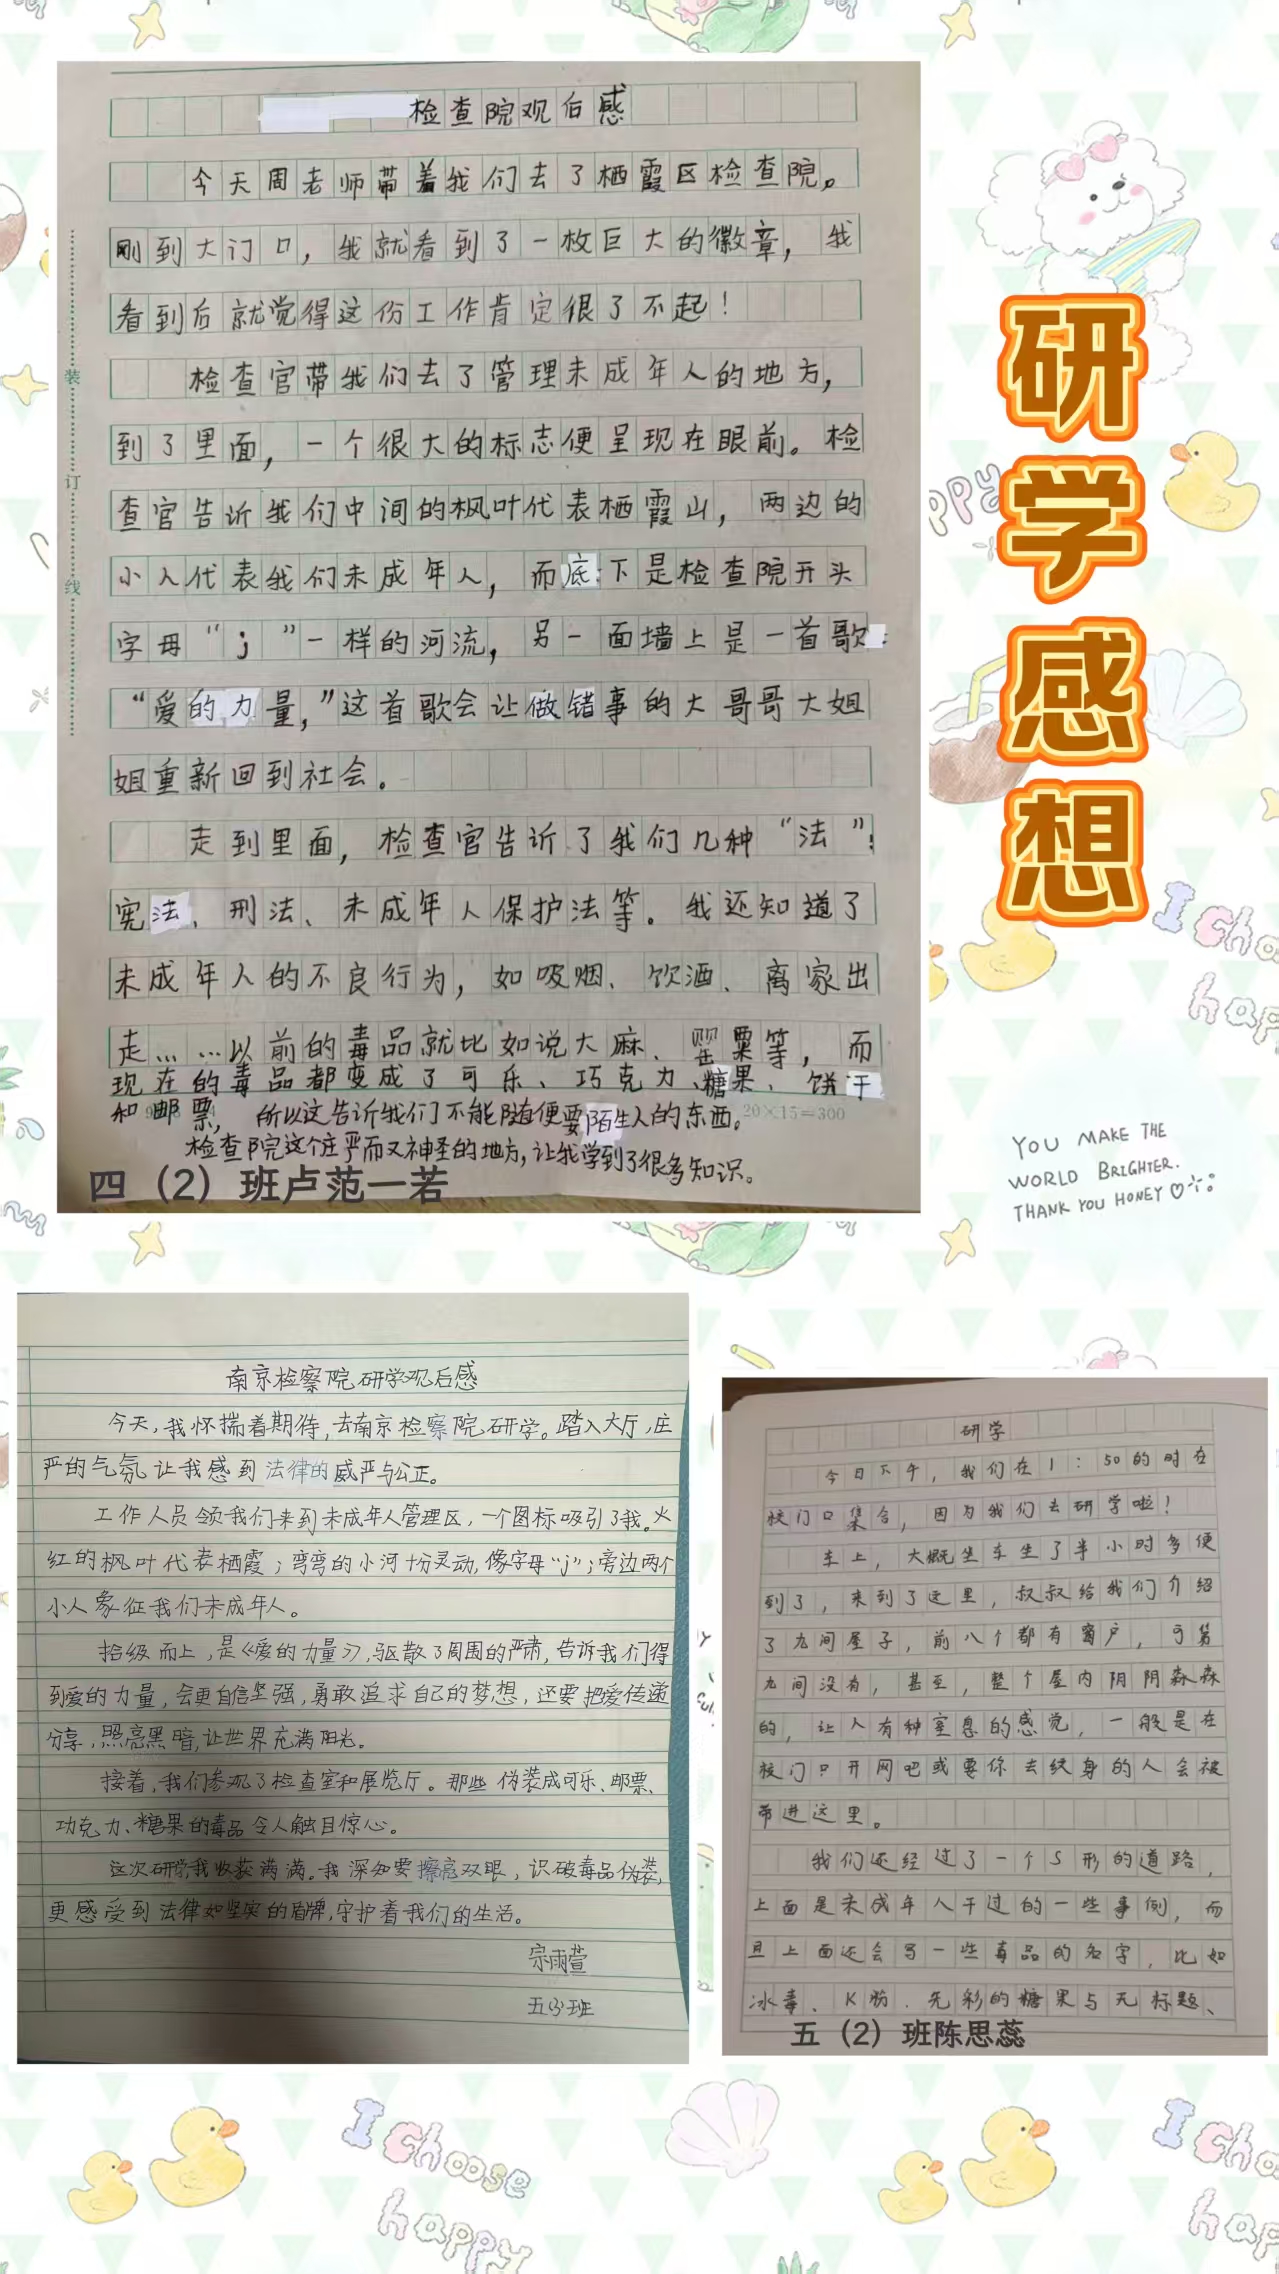 检查院观后感
今天周老师带着我们去了栖霞区检查院。
刚到大门口，我就看到了一枚巨大的徽章，我
看到后就觉得这份工作肯定很了不起！
检查官带我们去了管理未成年人的地方，
到了里面，一个很大的标志便呈现在眼前。检
查官告诉我们中间的枫叶代表栖霞山，两边的
小人代表我们未成年人，而底下是检查院开头
字母“j”一样的河流，另一面墙上是一首歌：
“爱的力量，”这首歌会让做错事的大哥哥大姐
姐重新回到社会。
走到里面，检查官告诉了我们几种“法”：
宪法、刑法、未成年人保护法等。我还知道了
未成年人的不良行为，如吸烟、饮酒、离家出
走……以前的毒品就比如说大麻、罂粟等，而
现在的毒品都变成了可乐、巧克力、糖果、饼干
和邮票，所以这告诉我们不能随便要陌生人的东西。
20×15=300
检查院这个庄严而又神圣的地方，让我学到了很多知识。
四（2）班卢范一若
装
订
线
研
学
感
想
PPY
YOU MAKE THE
WORLD BRIGHTER.
THANK YOU HONEY
I Choose
happy
南京检察院研学观后感
今天，我怀揣着期待，去南京检察院研学。踏入大厅，庄
严的气氛让我感到法律的威严与公正。
工作人员领我们来到未成年人管理区，一个图标吸引了我。火
红的枫叶代表栖霞；弯弯的小河十份灵动，像字母“j”；旁边两个
小人象征我们未成年人。
拾级而上，是《爱的力量》，驱散了周围的严肃，告诉我们得
到爱的力量，会更自信坚强，勇敢追求自己的梦想，还要把爱传递
分享，照亮黑暗，让世界充满阳光。
接着，我们参观了检查室和展览厅。那些伪装成可乐、邮票、
巧克力、糖果的毒品令人触目惊心。
这次研学，我收获满满。我深知要擦亮双眼，识破毒品伪装，
更感受到法律如坚实的盾牌，守护着我们的生活。
宗雨萱
五班
研学
今日下午，我们在1：50的时在
校门口集合，因为我们去研学啦！
车上，大概坐车坐了半小时多便
到了，来到了这里，叔叔给我们介绍
了九间屋子，前八个都有窗户，可第
九间没有，甚至，整个屋内阴阴森森
的，让人有种窒息的感觉，一般是在
校门口开网吧或要你去纹身的人会被
带进这里。
我们还经过了一个S形的道路，
上面是未成年人干过的一些事例，而
且上面还会写一些毒品的名字，比如
冰毒、K粉、无彩的糖果与无标题、
五（2）班陈思蕊
I Choose
happy
I Choo
happ